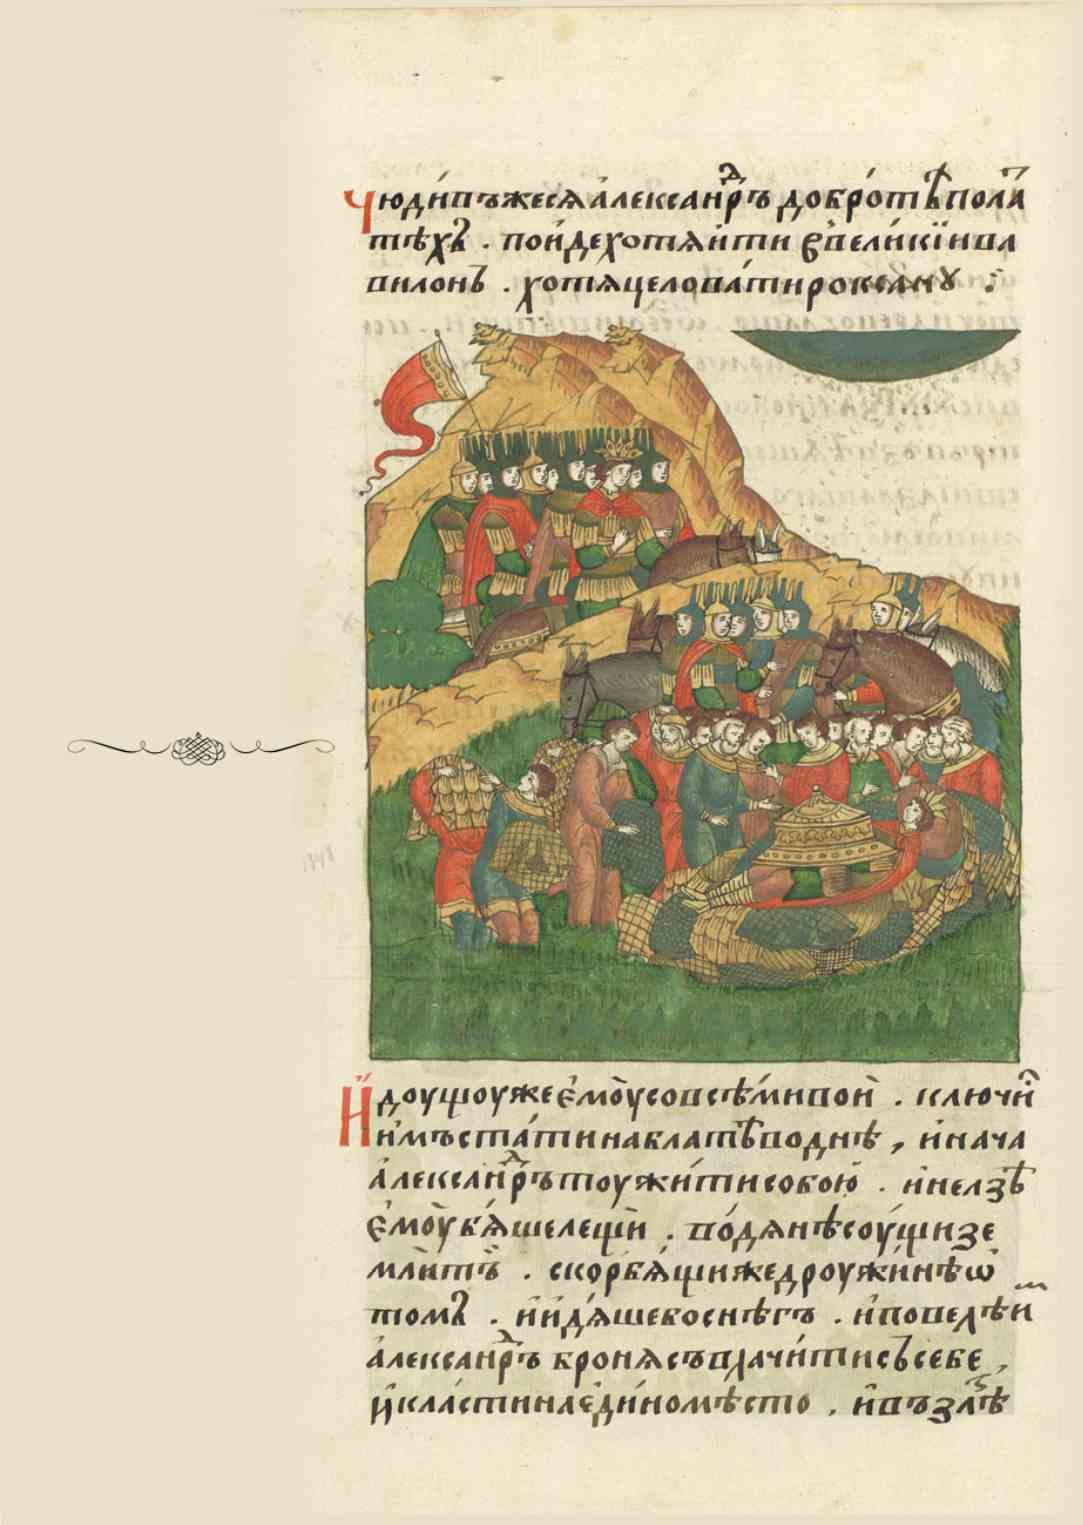 Чюди́въжесѧ а҆леѯанⷣръ добро́тѣ пола́
тѣхъ . поиде хотѧ и҆ти в вели́кїи вва
вилонъ . хотѧ целова́ти роксанꙋ :
И҆доущоуже є҆моу̀ со всѣ́ми вои̑ . ключи́
и҆мъ ста́ти на блатѣ воднѣ , и҆ нача
а҆лекса́нⷣръ тоу жи́ти собою̀ . и҆ нелзѣ̀
є҆моу̀ бѧ́ше лещѝ . во́дѧнѣ соу́щи зе
млѝ тѣ̀ . скорбѧ́щи же дроужи́нѣ ѡ҆
томъ . и҆ и҆дѧ́ше бо снѣгъ . и҆ повелѣ и҆ᵐ
а҆лексанⷣръ бронѧ съвлачи́ти съ себе ,
и҆ кла́сти на є҆ди́но мѣ́сто . и҆ възлѣ